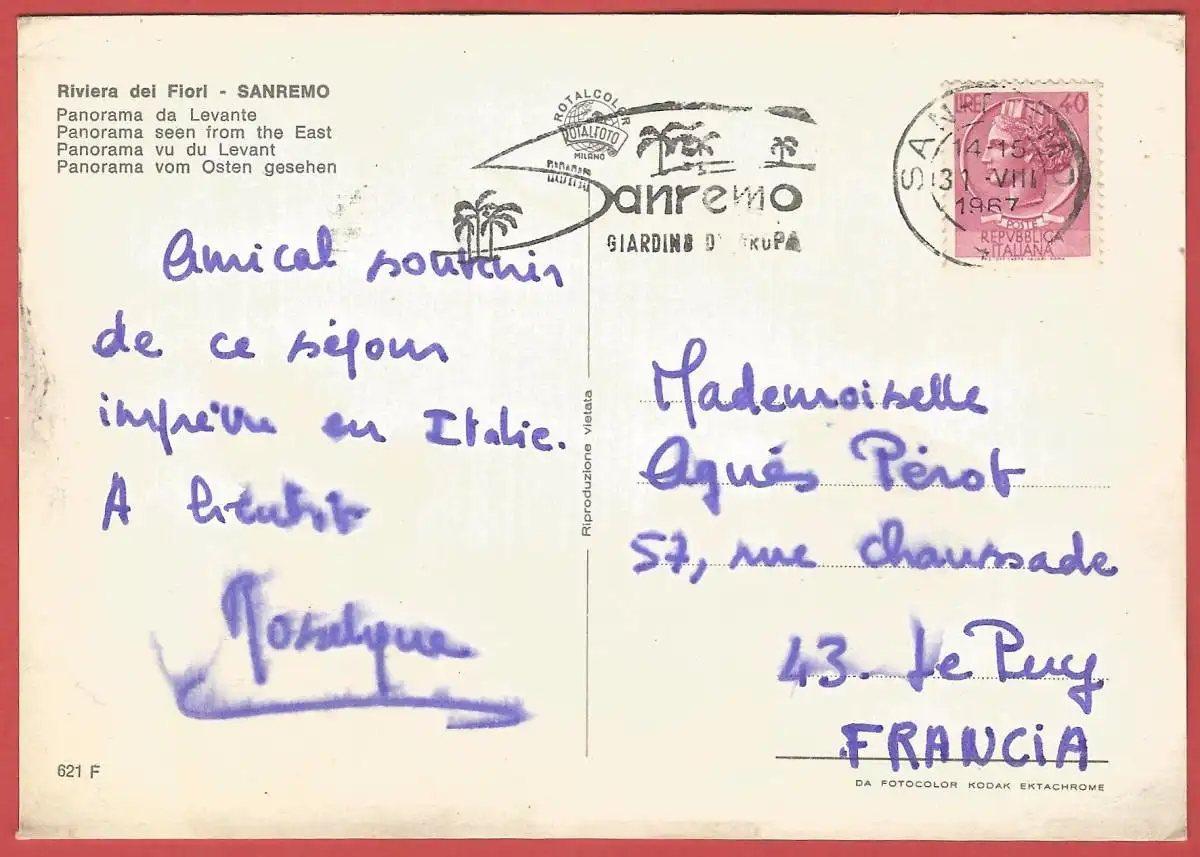 Riviera dei Fiori - SANREMO
Panorama da Levante
Panorama seen from the East
Panorama vu du Levant
Panorama vom Osten gesehen
ROTALCOLOR
ROTALFOTO
MILANO
Sanremo
GIARDINO
LIRE 40
14-15
31 VIII
1967
POSTE
REPVBBLICA
ITALIANA
Amical souvenir
de ce séjour
imprévu en Italie.
A bientôt
Rosselyne
Riproduzione vietata
Mademoiselle
Agnés Pérot
57, rue Chaussade
43. Le Puy
FRANCIA
621 F
DA FOTOCOLOR KODAK EKTACHROME